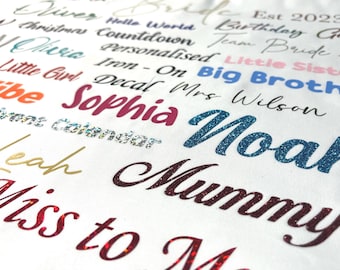 Oliver Bride Est 2023
Hello World Birthday G
Christmas Countdown Team Bride
Olivia Personalised Little Siste
Little Girl Iron - On Big Broth
ibe Decal Mrs Wilson
Sophia Noah
Leah Mummy
Miss to M